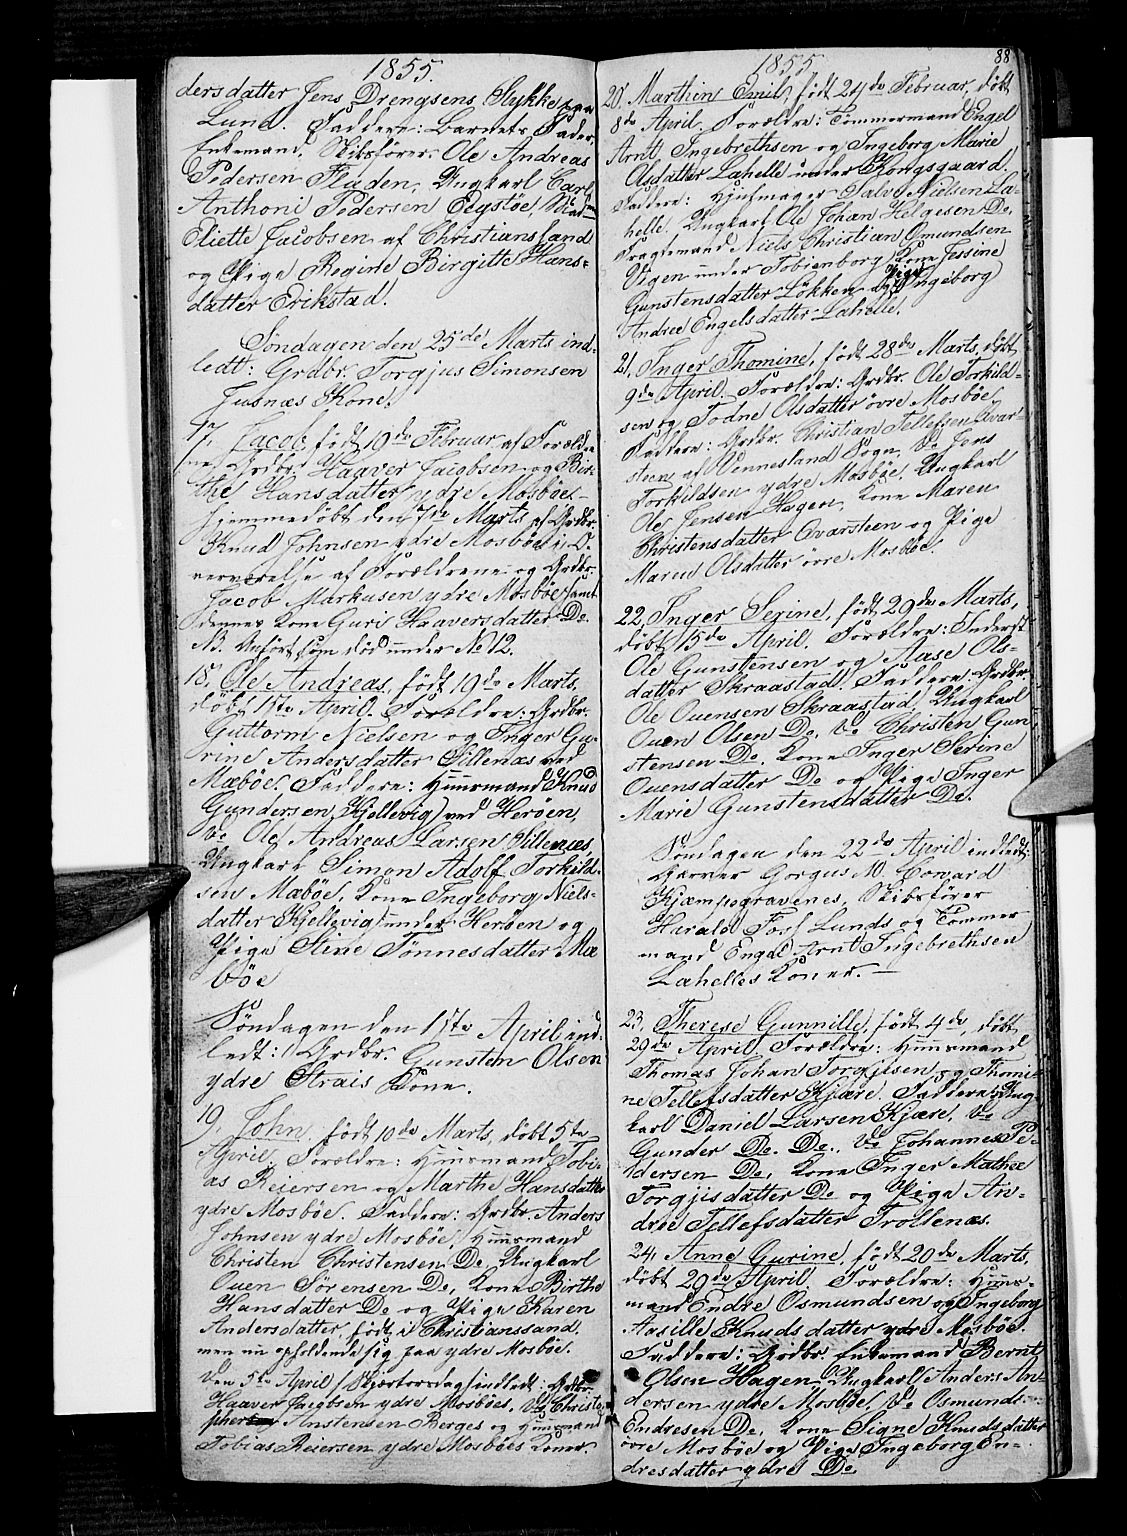 1855.
dersdatter Jens Drengsens Stykke paa
Lund. Faddere: Barnets Fader,
Enkemand, Skibsfører Ole Andreas
Pedersen Fladen, Ungkarl Carl
Anthoni Pedersen Eegstøe, Mad.
Eliette Jacobsen af Christianssand
og Pige Regine Birgitte Hans-
datter Erikstad.
Søndagen den 25de Marts ind-
ledt: Grdbr. Torgjus Simonsen
Jusnæs Kone.
17, Jacob, født 19de Februar af Foræld-
ne, Grdbr. Haaver Jacobsen og Bir-
the Hansdatter ydre Mosbøe -
hjemmedøbt den 7de Marts af Grdbr.
Knud Johnsen ydre Mosbøe i O-
verværelse af Forældrene og Grdbr.
Jacob Markusen ydre Mosbøe samt
dennes Kone Guri Haaversdatter Do.
NB. Anført som død under No 12.
18, Ole Andreas, født 19de Marts,
døbt 1ste April. Forældre: Grdbr.
Guttorm Nielsen og Inger Gu-
rine Andersdatter Sillenæs ved
Mæbøe. Faddere: Huusmand Knud
Gundersen Kjellevig ved Herøen,
Do Ole Andreas Larsen Sillenæs,
Ungkarl Simon Adolf Torkild-
sen Mæbøe, Kone Ingeborg Niels-
datter Kjellevig under Herøen og
Pige Stine Tønnesdatter Mæ-
bøe
Søndagen den 1ste April ind-
ledt: Grdbr. Gunsten Olsen
ydre Strais Kone.
19, John, født 10de Marts, døbt 5te
April. Forældre: Huusmand Tobi-
as Reiersen og Marthe Hansdatter
ydre Mosbøe. Faddere: Grdbr. Anders
Johnsen ydre Mosbøe, Huusmand
Christen Christensen Do, Ungkarl
Ouen Sørensen Do, Kone Birthe
Hansdatter Do og Pige Karen
Andersdatter, født i Christianssand,
men nu opholdende sig paa ydre Mosbøe.
Den 5te April (Skjærtorsdag) indledt: Grdbr.
Haaver Jacobsen ydre Mosbøes, Do Christo-
pher Anstensen Berges og Huusmand
Tobias Reiersen ydre Mosbøes Koner.
1855
88
20, Marthin Emil, født 24de Februar, døbt
8de April. Forældre: Tømmermand Engel
Arnt Ingebrethsen og Ingeborg Marie
Olsdatter Lahelle under Kongsgaard.
Faddere: Hjulmager Salve Nielsen La-
helle, Ungkarl Ole Johan Helgesen Do,
Fragtemand Niels Christian Omundsen
Vigen under Tobienborg, Kone Jessine
Gunstensdatter Løkken og Pige Ingeborg
Andree Engelsdatter Lahelle.
21, Inger Thomine, født 28de Marts, døbt
9de April. Forældre: Grdbr. Ole Torkild-
sen og Todne Olsdatter øvre Mosbøe
Faddere: Grdbr. Christian Tellefsen Qvar-
steen af Vennesland Sogn, Do Jens
Torkildsen ydre Mosbøe, Ungkarl
Ole Jensen Hagen, Kone Maren
Christensdatter Qvarsteen og Pige
Maren Olsdatter øvre Mosbøe.
22, Inger Serine, født 29de Marts,
døbt 15de April. Forældre: Inderst
Ole Gunstensen og Aase Ols-
datter Skraastad. Faddere: Grdbr.
Ole Ouensen Skraastad, Ungkarl
Ouen Olsen Do, Do Christen Gun-
stensen Do, Kone Inger Serine
Ouensdatter Do og Pige Inger
Marie Gunstensdatter Do.
Søndagen den 22de April indledt:
Garver Gorgus M. Corvard
Kjæmpegravenes, Skibsfører
Harald Foss Lunds og Tømmer-
mand Engel Arnt Ingebrethsen
Lahelles Koner. -
23, Therese Gunnille, født 4de, døbt
29de April. Forældre: Huusmand
Thomas Johan Torgjisen og Thomi-
ne Tellefsdatter Kjære. Faddere: Ung-
karl Daniel Larsen Kjære, Do
Gunder Do. Do., Do Johannes Pe-
dersen Do, Kone Inger Mathee
Torgjisdatter Do og Pige An-
dree Tellefsdatter Trollenæs.
24, Anne Gurine, født 20de Marts,
døbt 29de April. Forældre: Huus-
mand Endre Osmundsen og Ingeborg
Aasille Knudsdatter ydre Mosbøe.
Faddere: Grdbr. Enkemand Bernt
Olsen Hagen, Ungkarl Anders An-
dersen ydre Mosbøe, Do Osmund
Endresen Do, Kone Signe Knudsdatter
øvre Mosbøe og Pige Ingeborg En-
dresdatter ydre Do.